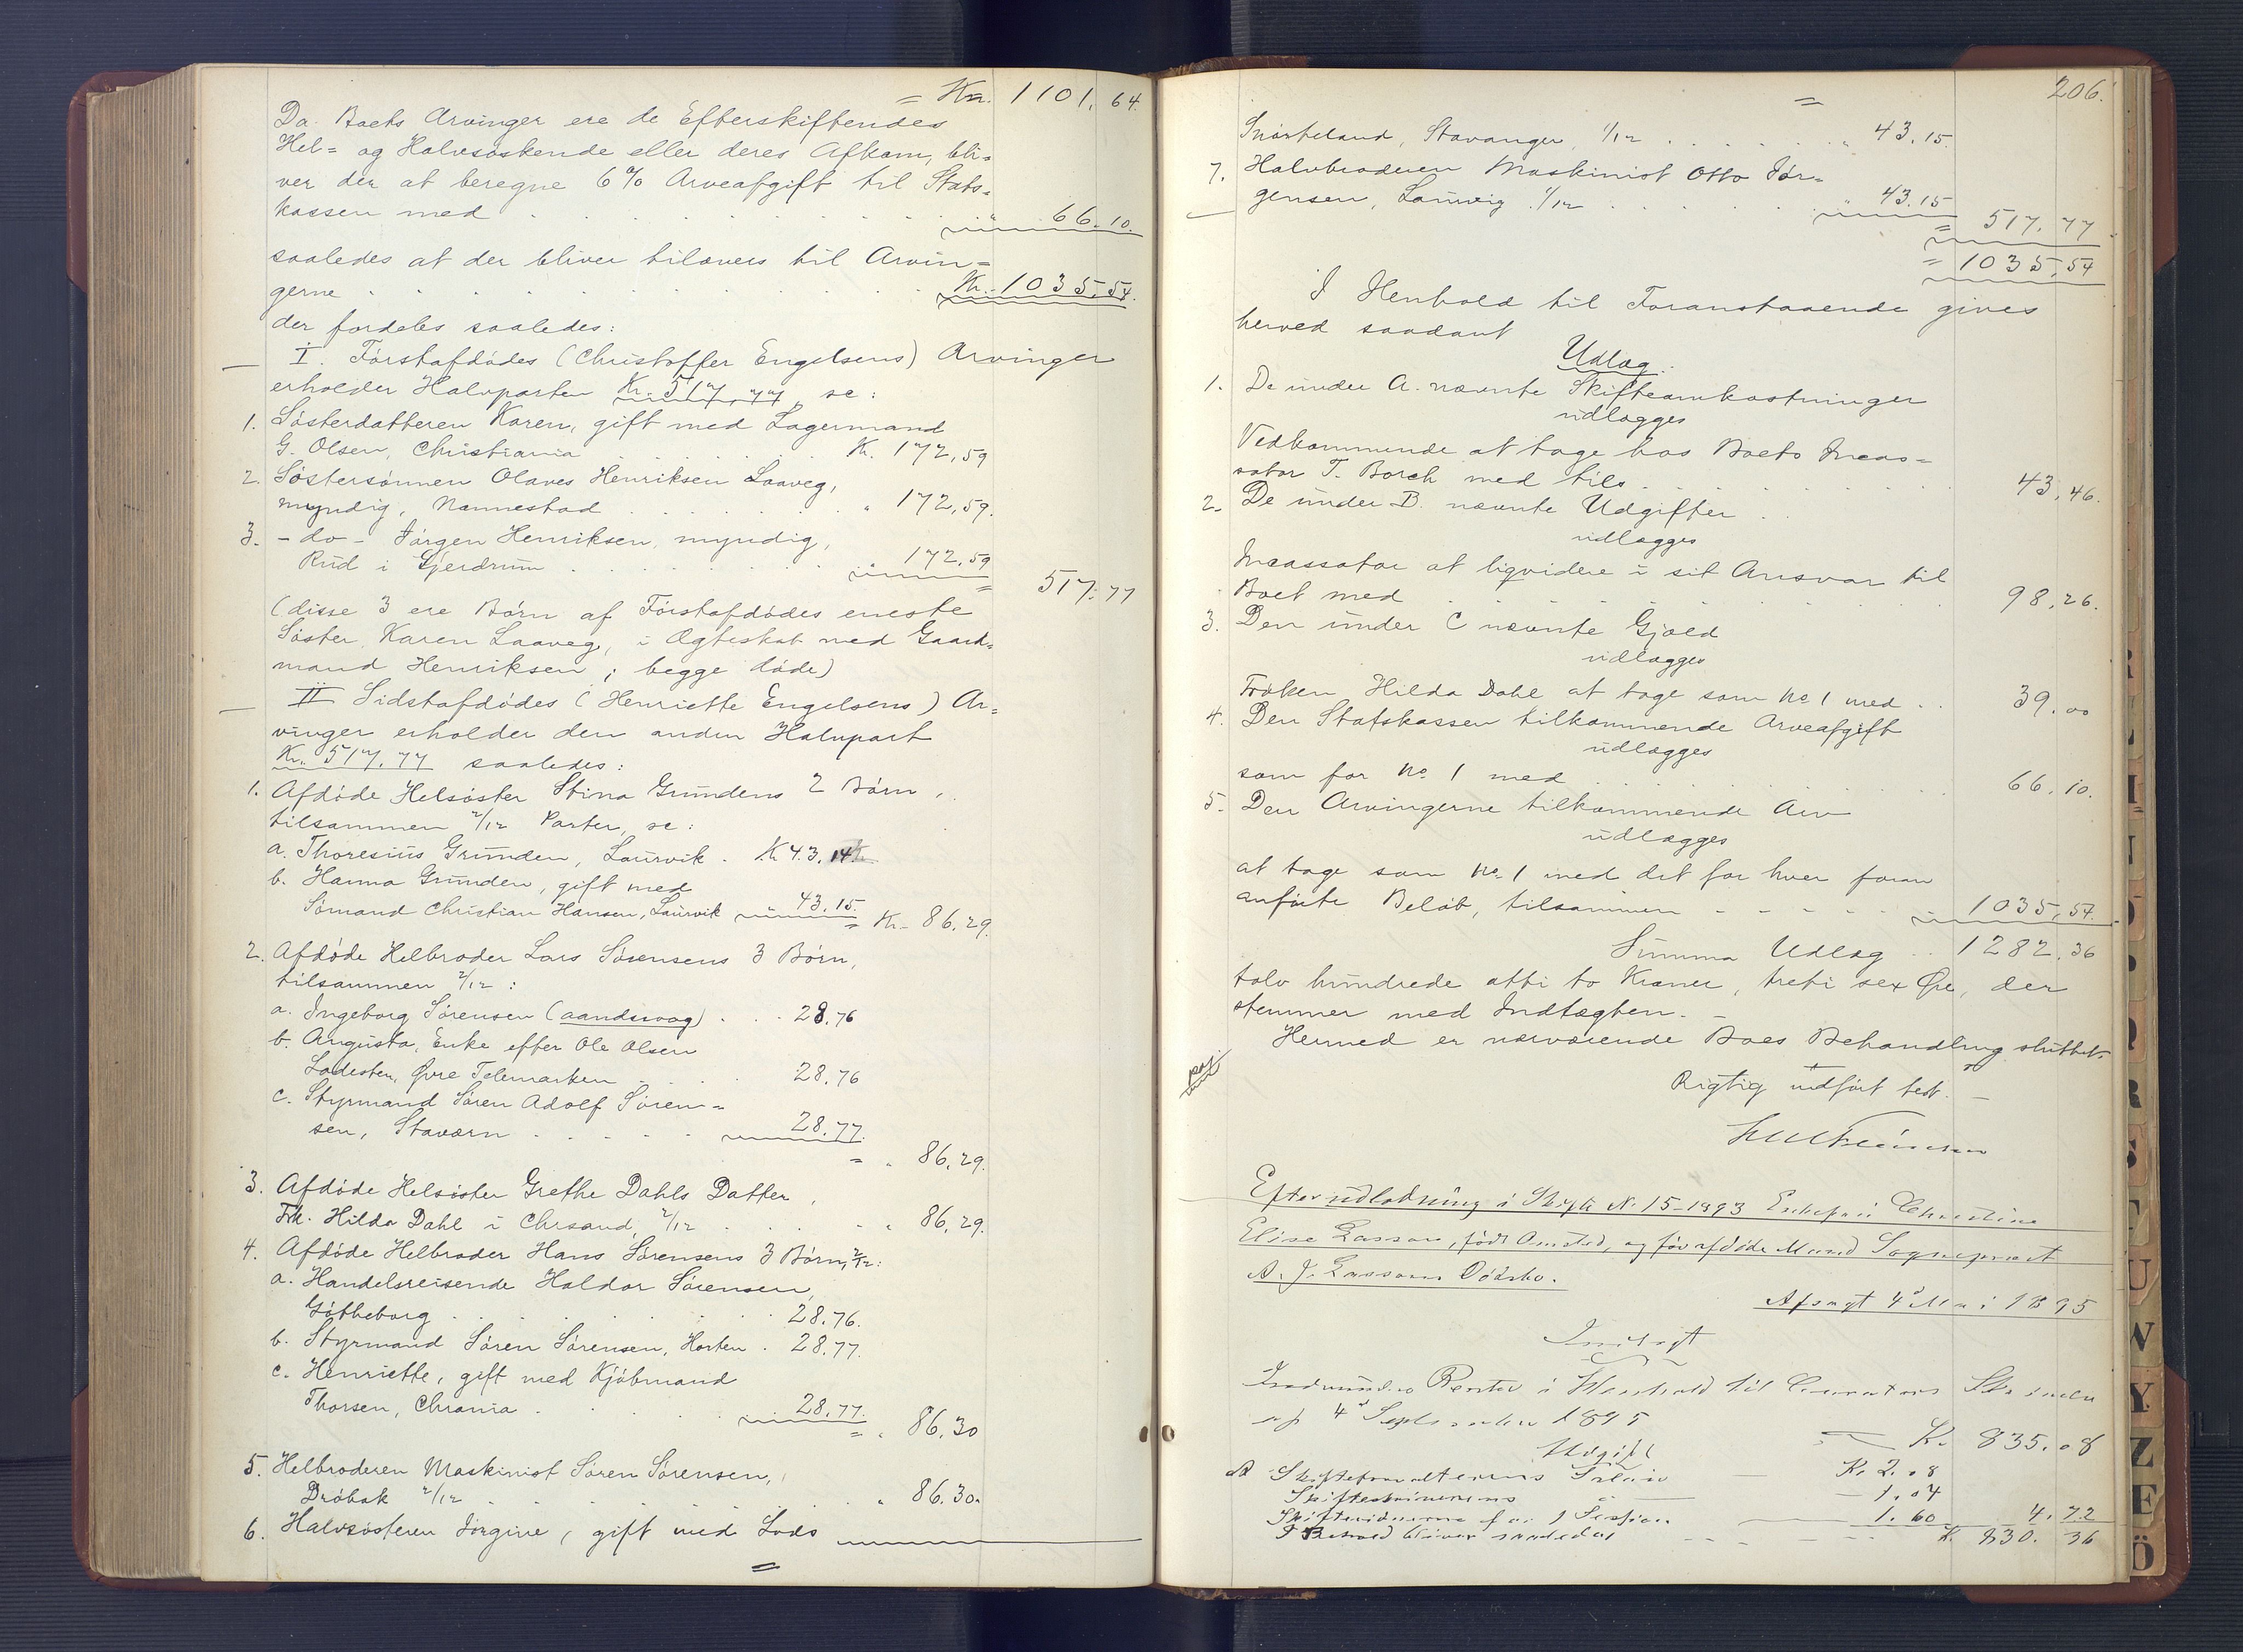 = Kr. 1101,64.
Da Boets Arvinger ere de Efterskiftendes
Hel- og Halvsøskende eller deres Afkom, bli-
ver der at beregne 6% Arveafgift til Stats-
kassen med . . . . . . . . " 66.10.
saaledes at der bliver tilovers til Arvin-
gerne . . . . . . . . Kr. 1035,54.
der fordeles saaledes:
I. Førstafdødes (Christoffer Engelsens) Arvinger
erholder Halvparten Kr. 517,77, se:
1. Søsterdatteren Karen, gift med Lagermand
G. Olsen, Christiania . . . . Kr. 172,59
2. Søstersønnen Olaves Henriksen Laaveg,
myndig, Nannestad . . . . " 172,59.
3. - do - Jørgen Henriksen, myndig,
Rud i Gjerdrum . . . . " 172,59
= 517.77
(disse 3 ere Børn af Førstafdødes eneste
Søster Karen Laaveg, i Ægteskab med Gaard-
mand Henriksen; begge døde)
II Sidstafdødes (Henriette Engelsens) Ar-
vinger erholder den anden Halvpart
Kr. 517.77 saaledes:
1. Afdøde Helsøster Stina Grundens 2 Børn,
tilsammen 2/12 Parter, se:
a. Thoresius Grunden, Laurvik . Kr 43.14
b. Hanna Grunden, gift med
Sømand Christian Hansen, Laurvik " 43.15. = Kr. 86.29.
2. Afdøde Helbroder Lars Sørensens 3 Børn,
tilsammen 2/12:
a. Ingeborg Sørensen (aandssvag) . . . 28.76
b. Augusta, Enke efter Ole Olsen
Lodesten, Øvre Telemarken . . . 28.76
c. Styrmand Søren Adolf Søren-
sen, Staværn . . . . . 28.77.
= " 86,29.
3. Afdøde Helsøster Grethe Dahls Datter,
Frk. Hilda Dahl i Chrsand, 2/12 . . . . " 86,29.
4. Afdøde Helbroder Hans Sørensens 3 Børn, 2/12:
a. Handelsreisende Haldor Sørensen,
Gøtheborg . . . . . . 28.76.
b. Styrmand Søren Sørensen, Horten . 28.77.
c. Henriette, gift med Kjøbmand
Thorsen, Chrania . . . . 28.77.
= " 86.30
5. Helbroderen Maskinist Søren Sørensen,
Drøbak 2/12 . . . . . . . " 86.30.
6. Halvsøsteren Jørgine, gift med Lods
=
206.
=
Snørteland, Stavanger, 1/12 . . . . . " 43.15.
7. Halvbroderen Maskinist Otto Jør-
gensen, Laurvig 1/12 . . . . . " 43.15
= 517.77
= 1035,54
I Henhold til Foranstaaende gives
herved saadant
Udlæg.
1. De under A. nævnte Skifteomkostninger
udlægges
Vedkommende at tage hos Boets Incas-
sator T. Borch med tils. . . . . . 43,46.
2. De under B. nævnte Udgifter . .
udlægges
Incassator at liqvidere i sit Ansvar til
Boet med . . . . . . . 98,26.
3. Den under C nævnte Gjæld
udlægges
Frøken Hilda Dahl at tage som No 1 med . . 39.00
4. Den Statskassen tilkommende Arveafgift
udlægges
som for No 1 med . . . . . 66.10.
5. Den Arvingerne tilkommende Arv
udlægges
at tage som No 1 med det for hver foran
anførte Beløb, tilsammen - - - - - 1035,54.
Summa Udlæg . . 1282.36
tolv hundrede otti to Kroner, treti sex Øre, der
stemmer med Indtægten. -
Hermed er nærværende Boes Behandling sluttet.
Rigtig udført test. -
Efterudlodning i Skifte No 15-1893 Enkefru Christine
Elise Lasson, født Omsted, og førafdøde Mand Sogneprest
A. J. Lassons Dødsbo.
Afsagt 4de Mai 1895
Indtægt
Renter i Henhold til Curators Skrivelse
af 4de September 1895
Kr. 835.08
Udgift
A Skifteforvalterens Salær — Kr. 2.08
Skifteskriverens " — 1.04
Skiftevidnerne for 1 Session — 1.60 4.72
I Behold bliver saaledes - - - - Kr. 830.36